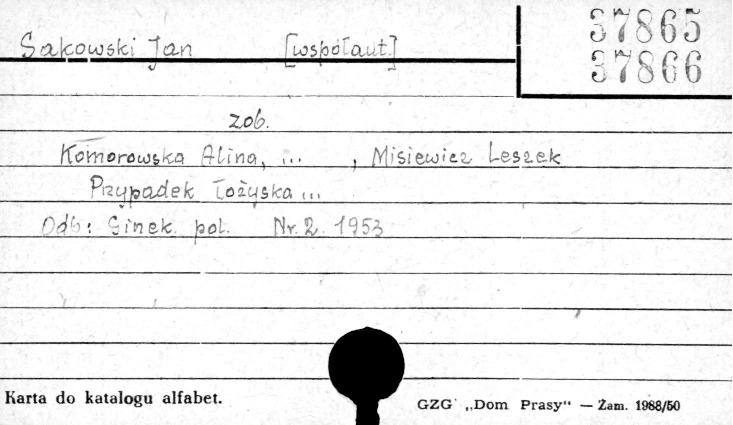 Sakowski Jan [współaut.]
37865
37866
zob.
Komorowska Alina, ... , Misiewicz Leszek
Przypadek łożyska ...
Odb: Ginek. pol. Nr. 2. 1953
Karta do katalogu alfabet.
GZG „Dom Prasy" — Zam. 1988/50